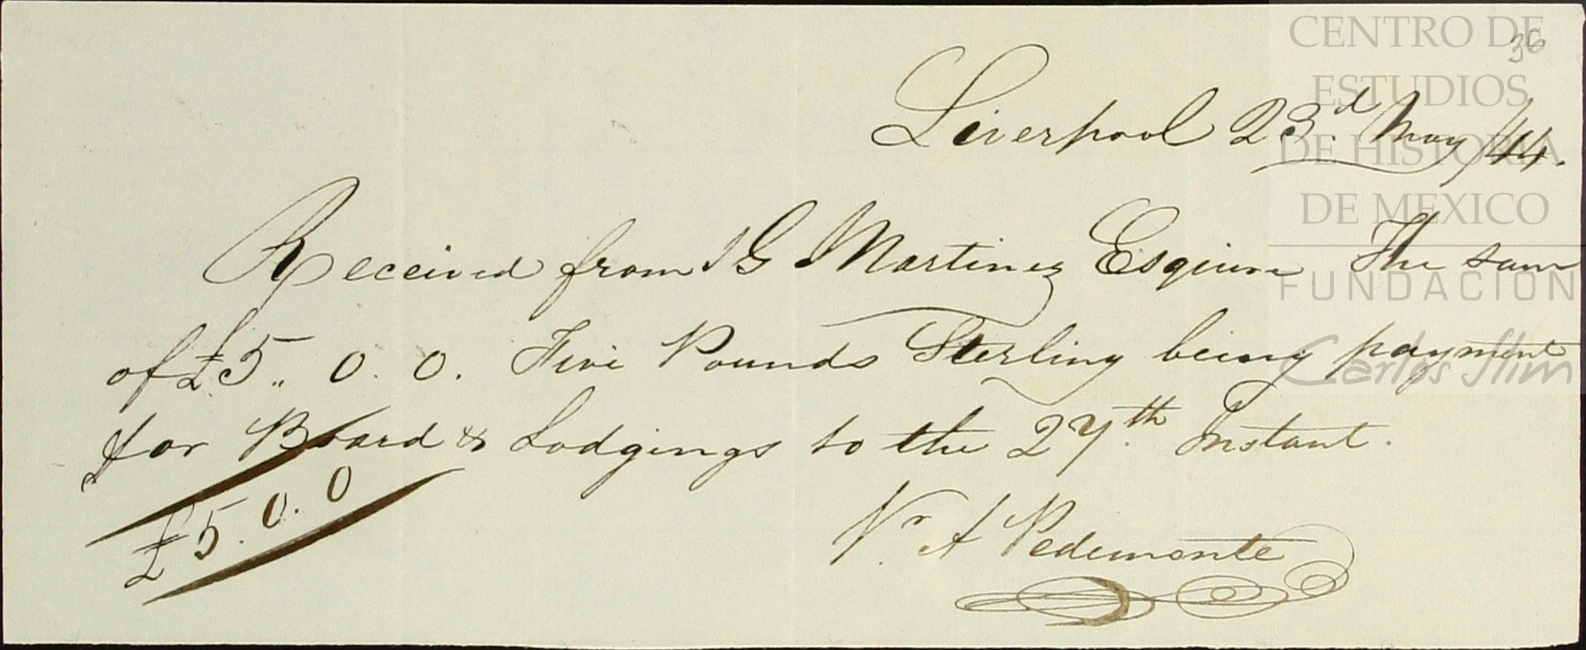 CENTRO DE
ESTUDIOS
DE HISTORIA
DE MEXICO
FUNDACION
Carlos Slim
36
Liverpool 23.d May /44.
Received from J G Martinez Esquire The sum
of £5,, 0. 0. Five Pounds Sterling being payment
for Board & Lodgings to the 27.th Instant.
£5. 0. 0
A Pedemonte